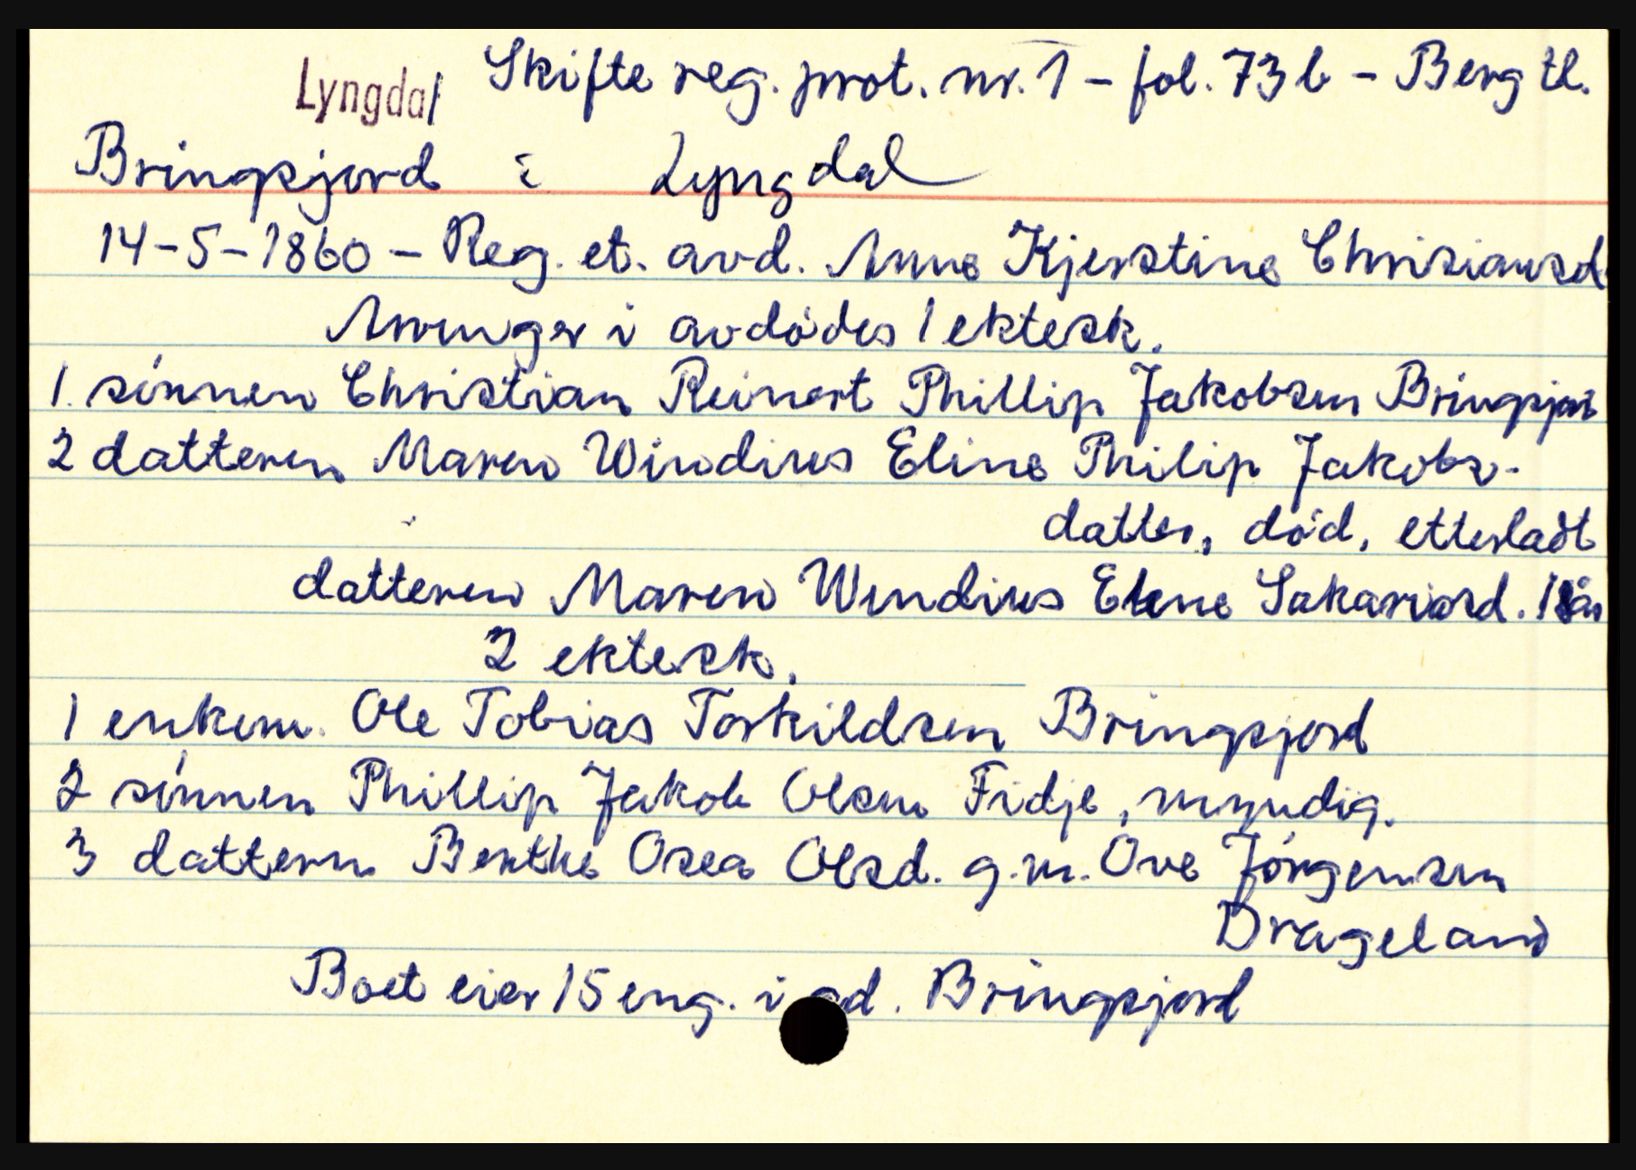 Lyngdal Skifte reg. prot. nr. 1 - fol. 73 b - Berg tl.
Bringsjord i Lyngdal
14-5-1860 - Reg. et. avd. Anne Kjerstine Chrisiansd.
Arvinger i avdødes 1 ektesk.
1. sønnen Christian Reinert Phillip Jakobsen Bringsjord
2 datteren Maren Windius Eline Philip Jakobs-
datter, død, etterladt
datteren Maren Wendius Elene Sakariasd. 18 år
2 ektesk.
1 enkem. Ole Tobias Torkildsen Bringsjord
2 sønnen Phillip Jakob Olsen Fidje, myndig.
3 dattern Benthe Osea Olsd. g.m. Ove Jørgensen
Drageland
Boet eier 15 eng. i gd. Bringsjord